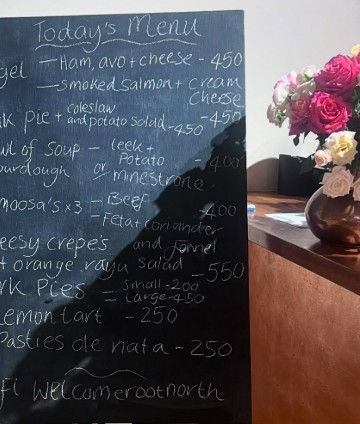 Today's Menu
gel - Ham, avo + cheese - 450
- smoked salmon + cream cheese - 450
rk pie + coleslaw and potato salad - 450
wl of soup - leek + Potato - 400
ourdough or minestrone
moosa's x3 - Beef - 400
- Feta + coriander
eesy crepes and fennel
+ orange salad - 550
rk Pies - small - 200
- Large - 450
Lemon tart - 250
Pasties de nata - 250
fi Welcomerootnorth